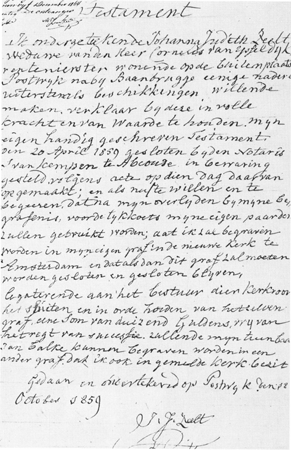 Testament
Ik ondergetekende Johanna Judith Zeelt,
Weduwe van den Heer Cornelis van
renteniersten wonende op de buitenplaats
Postryk naby Baambrugge eenige nadere
uiterste wils beschikkingen, willende
maken, verklaar by deze in volle
kracht en van Waarde te houden, myn
eigen handig geschreven Testament
den 20 April 1859 gesloten by den Notaris
I van Kempen te Abcoude in bewaring
gesteld volgens acte op dien dag daarvan
opgemaakt; en als nog te willen en te
begeeren, dat na myn overlyden by myne be
grafenis, voor de lykkoets myne eigen paarden
zullen gebruikt worden; dat ik zal begraven
worden in myn eigen graf in de nieuwe kerk te
Amsterdam en dat als dan dit graf zal moeten
worden gesloten en gesloten blyven,
legaterende aan het bestuur dier kerk voor
het sluiten en in orde houden van het zelven
graf, eene som van duizend Guldens, vry van
het regt van successie zullende myn
van Valke kunnen begraven worden in een
ander graf dat ik ook in gemelde kerk bezit
Gedaan en onderteekend op Postryk den 12
October 1859
J. J. Zeelt